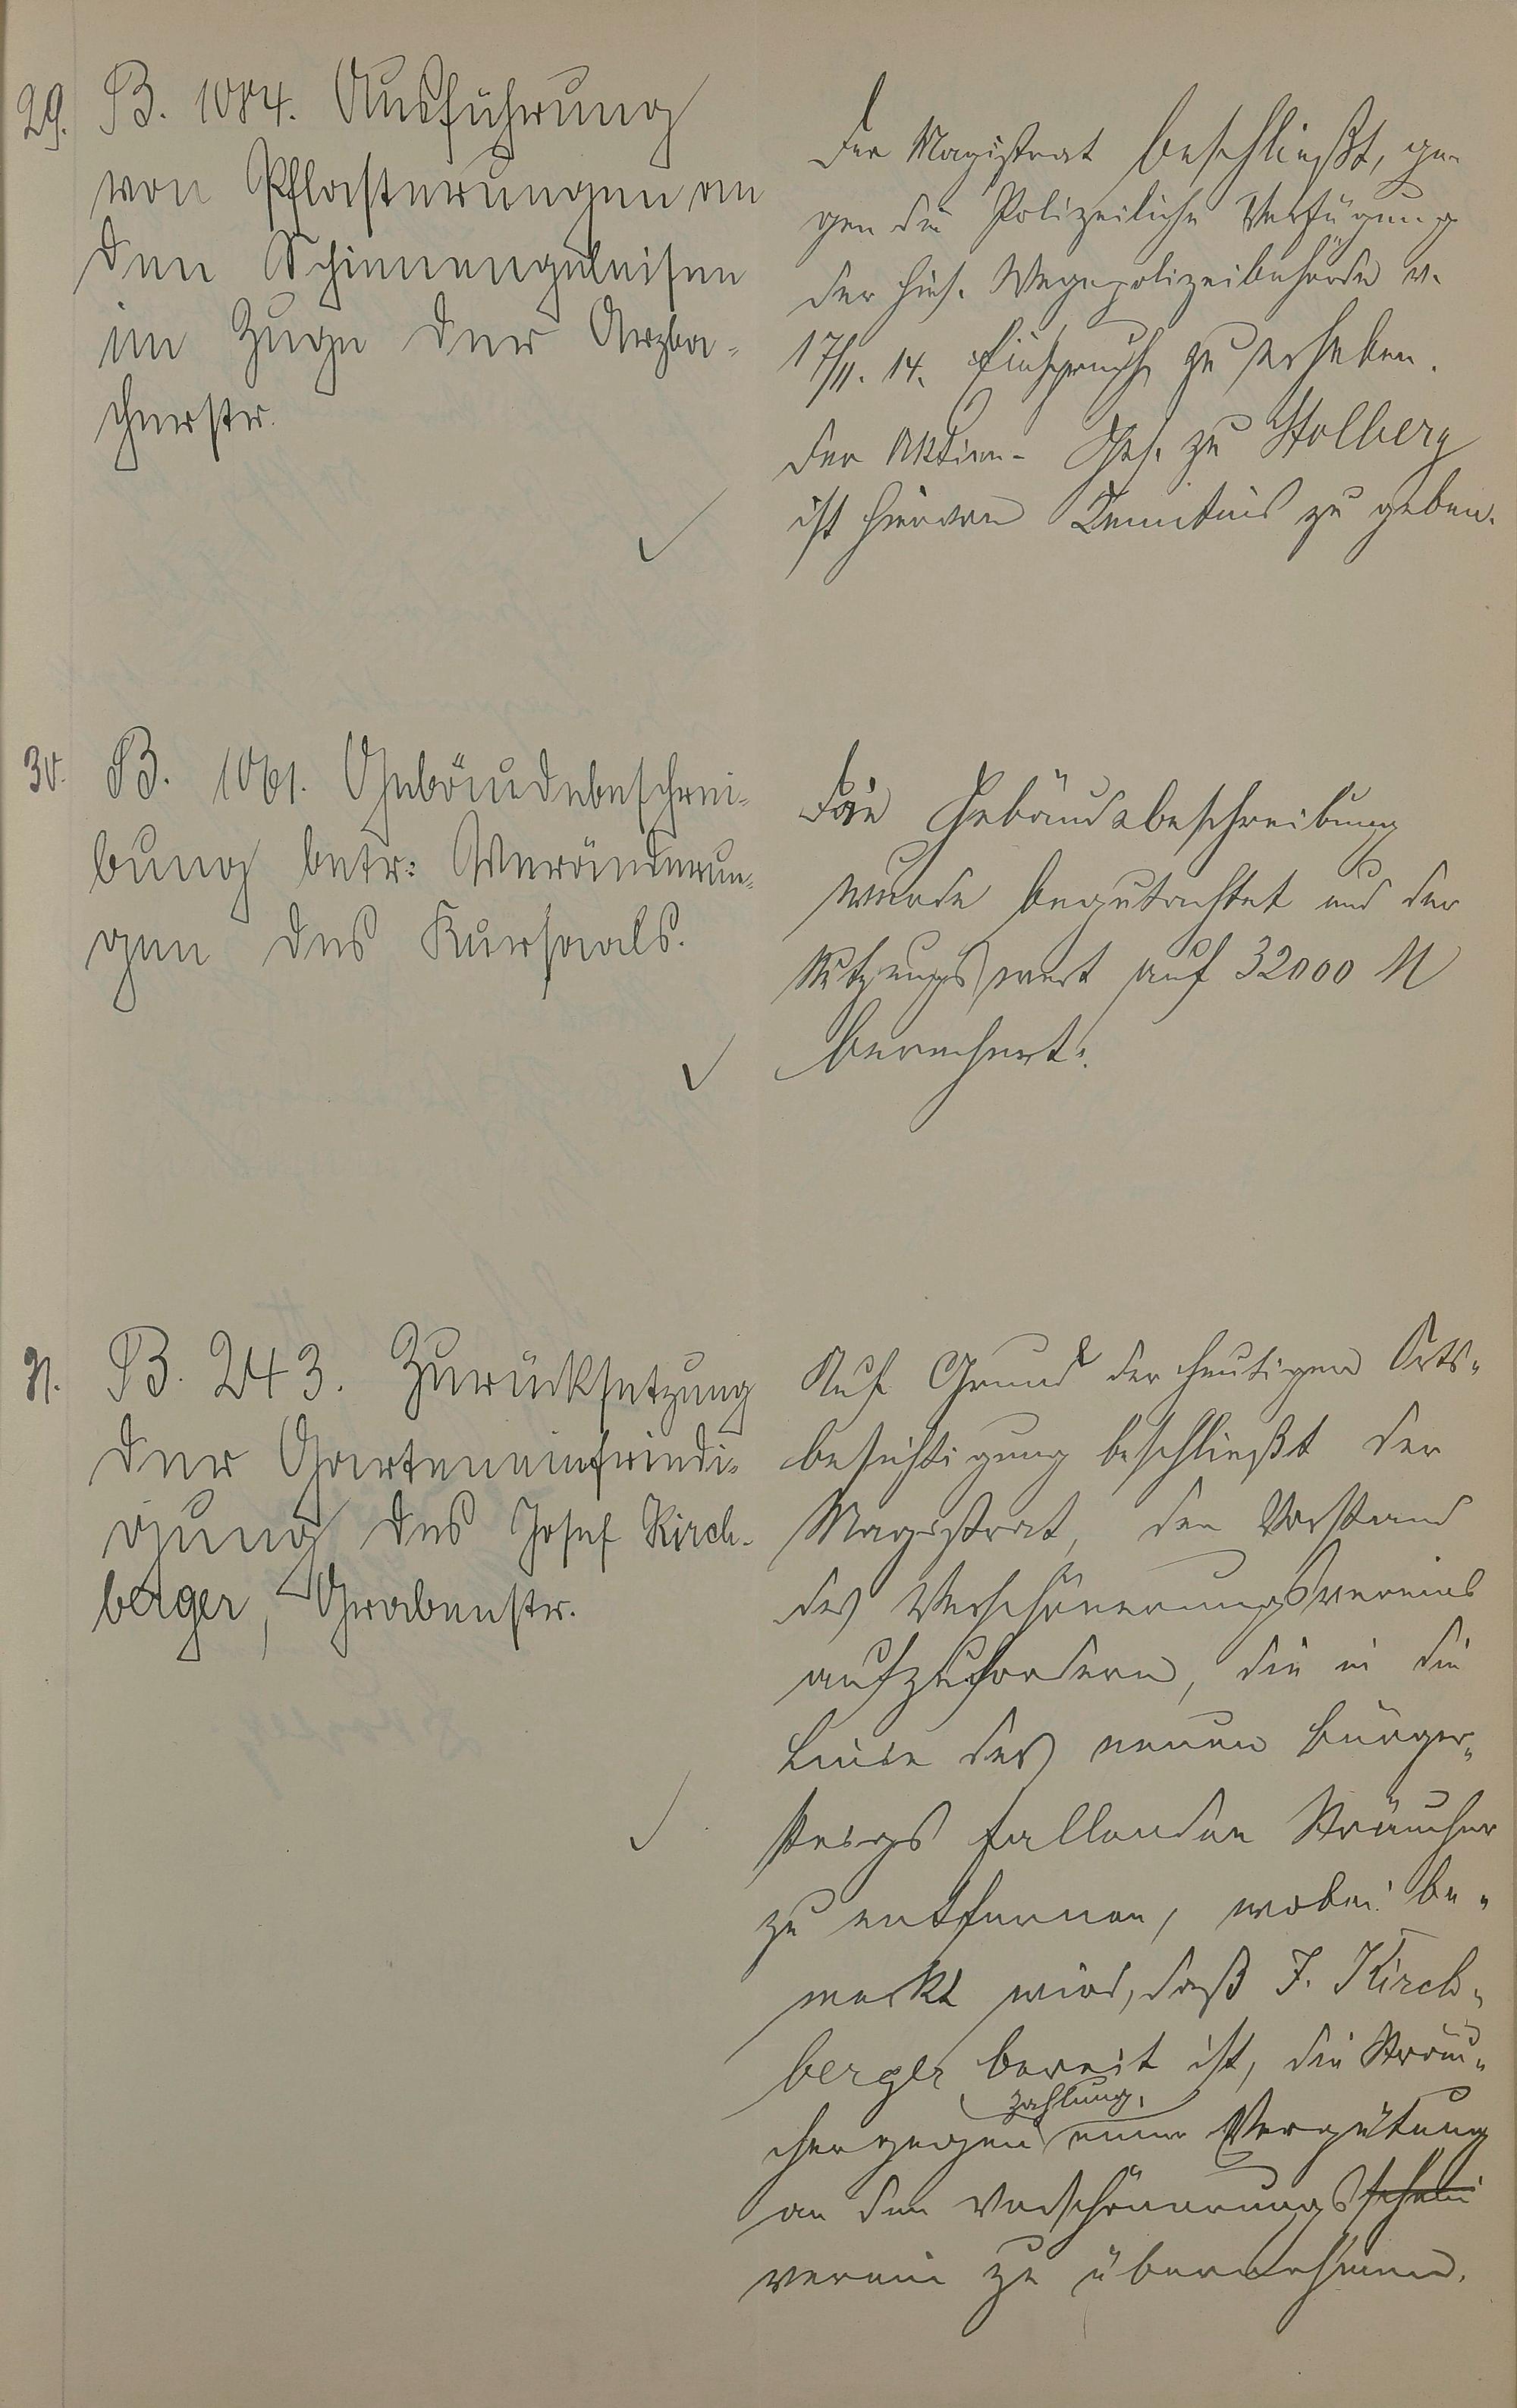 29. B. 1084. Ausführung
von Pflasterungen an
den Schienengeleisen
im Zuge der Arzba-
cherstr.
Der Magistrat beschließt, ge-
gen die Polizeiliche Verfügung
der hies. Wegepolizeibehörde v.
17/11. 14. Einspruch zu erheben.
Der Aktien- Ges. zu Stolberg
ist hiervon Kenntnis zu geben.
30. B. 1061. Gebäudebeschrei-
bung betr: Veränderun-
gen des Kursaals.
Die Gebäudebeschreibung
wurde begutachtet und der
Nutzungswert auf 32000 M
berechnet.
31. B. 243. Zurücksetzung
der Garteneinfriedi-
gung des Josef Kirch-
berger, Grabenstr.
Auf Grund der heutigen Orts-
besichtigung beschließt der
Magistrat, den Vorstand
des Verschönerungsvereins
aufzufordern, die in die
Linie des neuen Bürger-
steigs fallenden Sträucher
zu entfernen, wobei be-
merkt wird, daß J. Kirch-
berger bereit ist, die Sträu-
cher gegen Zahlung einer Vergütung
an den Verschönerungs
verein zu übernehmen.